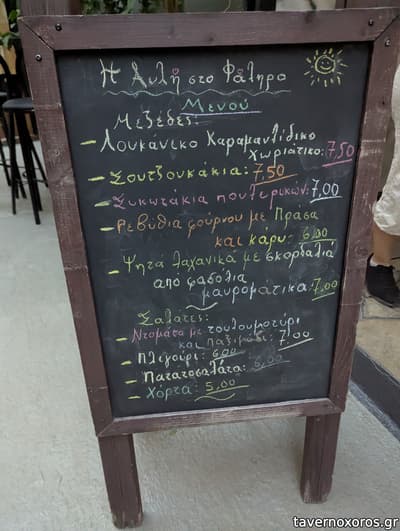 Η Αυλή στο Φάληρο
Μενού
Μεζέδες:
- Λουκάνικο Καραμανλίδικο
χωριάτικο: 7,50
- Σουτζουκάκια: 7,50
- Συκωτάκια πουλερικών: 7,00
- Ρεβύθια φούρνου με Πράσα
και κάρυ: 6,00
- Ψητά λαχανικά με σκορδαλιά
από φασόλια
μαυρομάτικα: 7,00
Σαλάτες:
- Ντομάτα με τουλουμοτύρι
και παξιμάδι: 7,00
- Πλιγούρι: 6,00
- Πατατοσαλάτα: 6,00
- Χόρτα: 5,00
tavernoxoros.gr